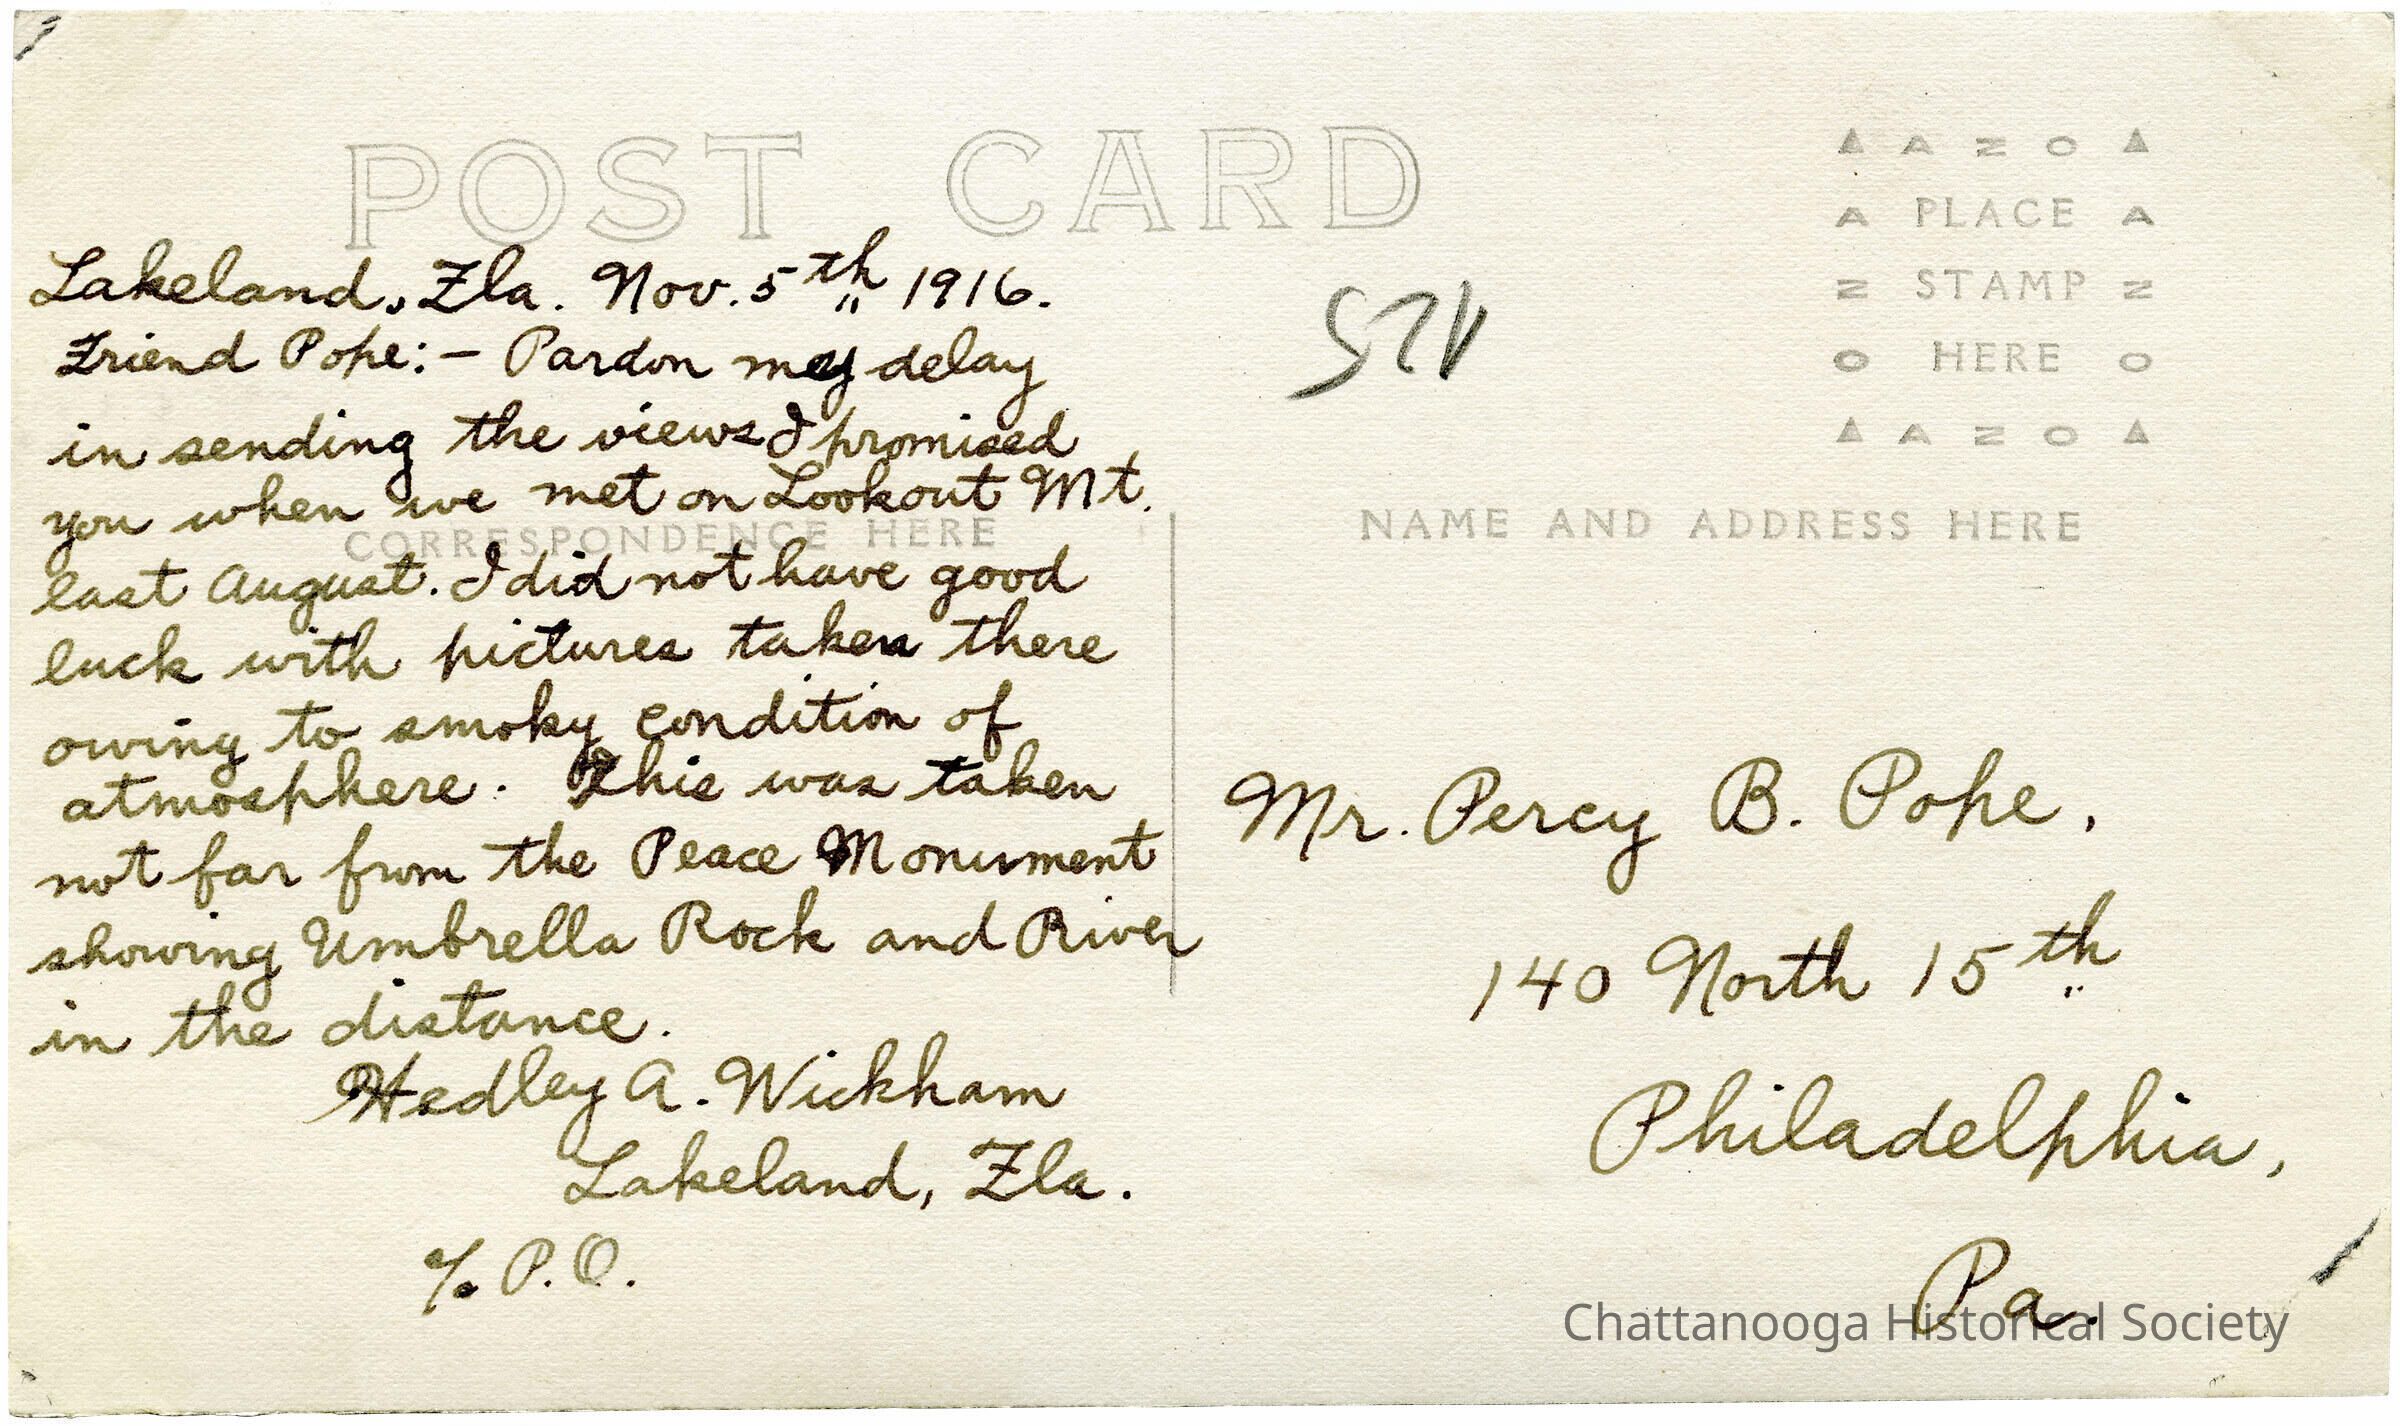 POST CARD
Lakeland, Fla. Nov. 5th 1916.
Friend Pope:— Pardon my delay
in sending the views I promised
you when we met on Lookout Mt.
CORRESPONDENCE HERE
last August. I did not have good
luck with pictures taken there
owing to smoky condition of
atmosphere. This was taken
not far from the Peace Monument
showing Umbrella Rock and River
in the distance.
Hedley A. Wickham
Lakeland, Fla.
c/o P.O.
▲ A N O ▲
A PLACE A
Z STAMP Z
O HERE O
▲ A N O ▲
NAME AND ADDRESS HERE
Mr. Percy B. Pope,
140 North 15th
Philadelphia,
Pa.
Chattanooga Historical Society